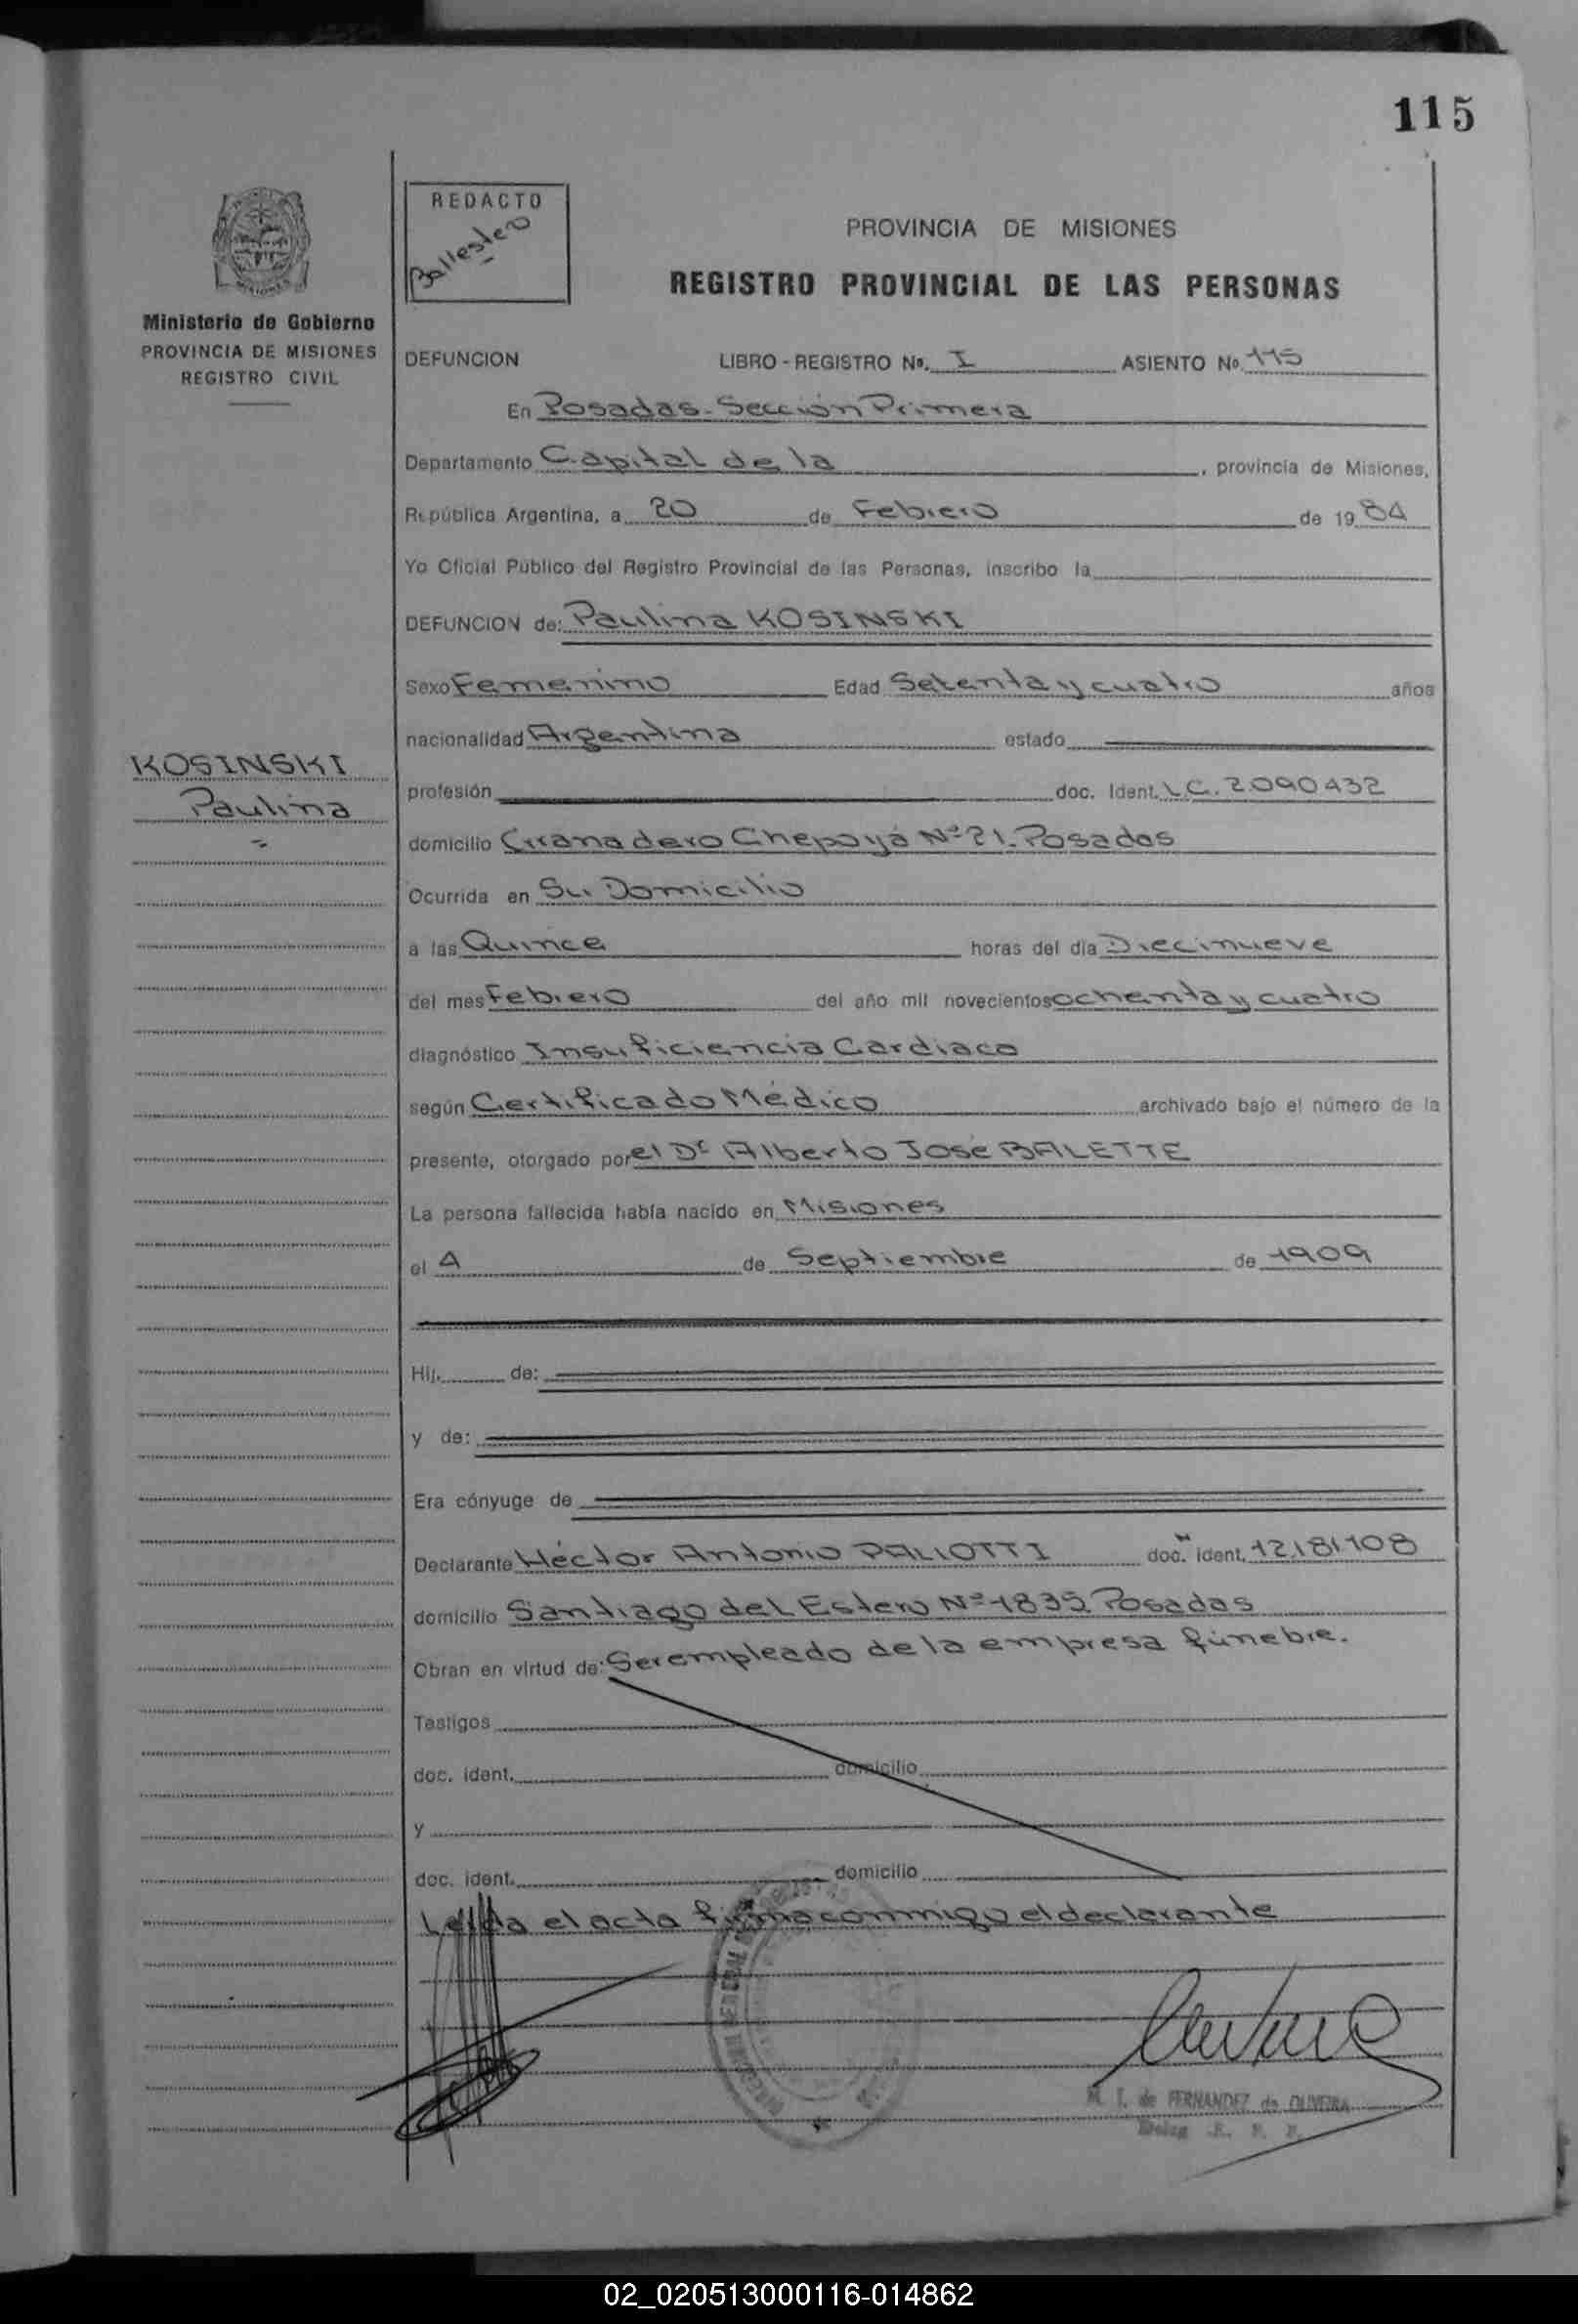 115
REDACTO
Ballestero
PROVINCIA DE MISIONES
REGISTRO PROVINCIAL DE LAS PERSONAS
Ministerio de Gobierno
PROVINCIA DE MISIONES
REGISTRO CIVIL
DEFUNCION LIBRO - REGISTRO No. I ASIENTO No. 115
En Posadas - Sección Primera
Departamento Capital de la, provincia de Misiones,
República Argentina, a 20 de Febrero de 1984
Yo Oficial Público del Registro Provincial de las Personas, inscribo la
DEFUNCION de: Paulina KOSINSKI
Sexo Femenino Edad Setenta y cuatro años
nacionalidad Argentina estado
KOSINSKI
Paulina
profesión doc. Ident. L.C. 2.090432
domicilio Granadero Chepoyá Nº 21 - Posadas
Ocurrida en Su Domicilio
a las Quince horas del día Diecinueve
del mes Febrero del año mil novecientos ochenta y cuatro
diagnóstico Insuficiencia Cardiaca
según Certificado Médico archivado bajo el número de la
presente, otorgado por el Dr Alberto José BALETTE
La persona fallecida había nacido en Misiones
el 4 de Septiembre de 1909
Hij. de:
y de:
Era cónyuge de
Declarante Héctor Antonio PALIOTTI doc. Ident. 12.181.108
domicilio Santiago del Estero Nº 1835 Posadas
Obran en virtud de: Ser empleado de la empresa fúnebre.
Testigos
doc. ident. domicilio
y
doc. ident. domicilio
Leída el acta firma conmigo el declarante
M. T. de FERNANDEZ de OLIVEIRA
02_020513000116-014862